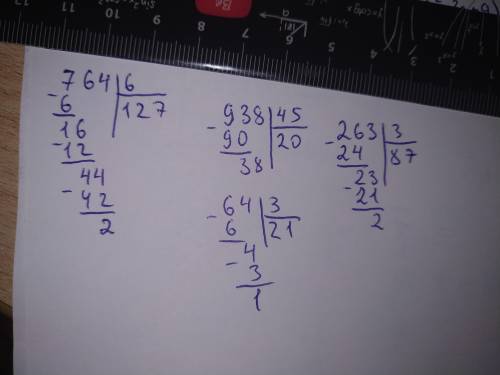 764 | 6
- 6 | 127
16
- 12
44
- 42
2
938 | 45
- 90 | 20
38
64 | 3
- 6 | 21
4
- 3
1
263 | 3
- 24 | 87
23
- 21
2
11 10 9 8 7 6 5 4 3 2